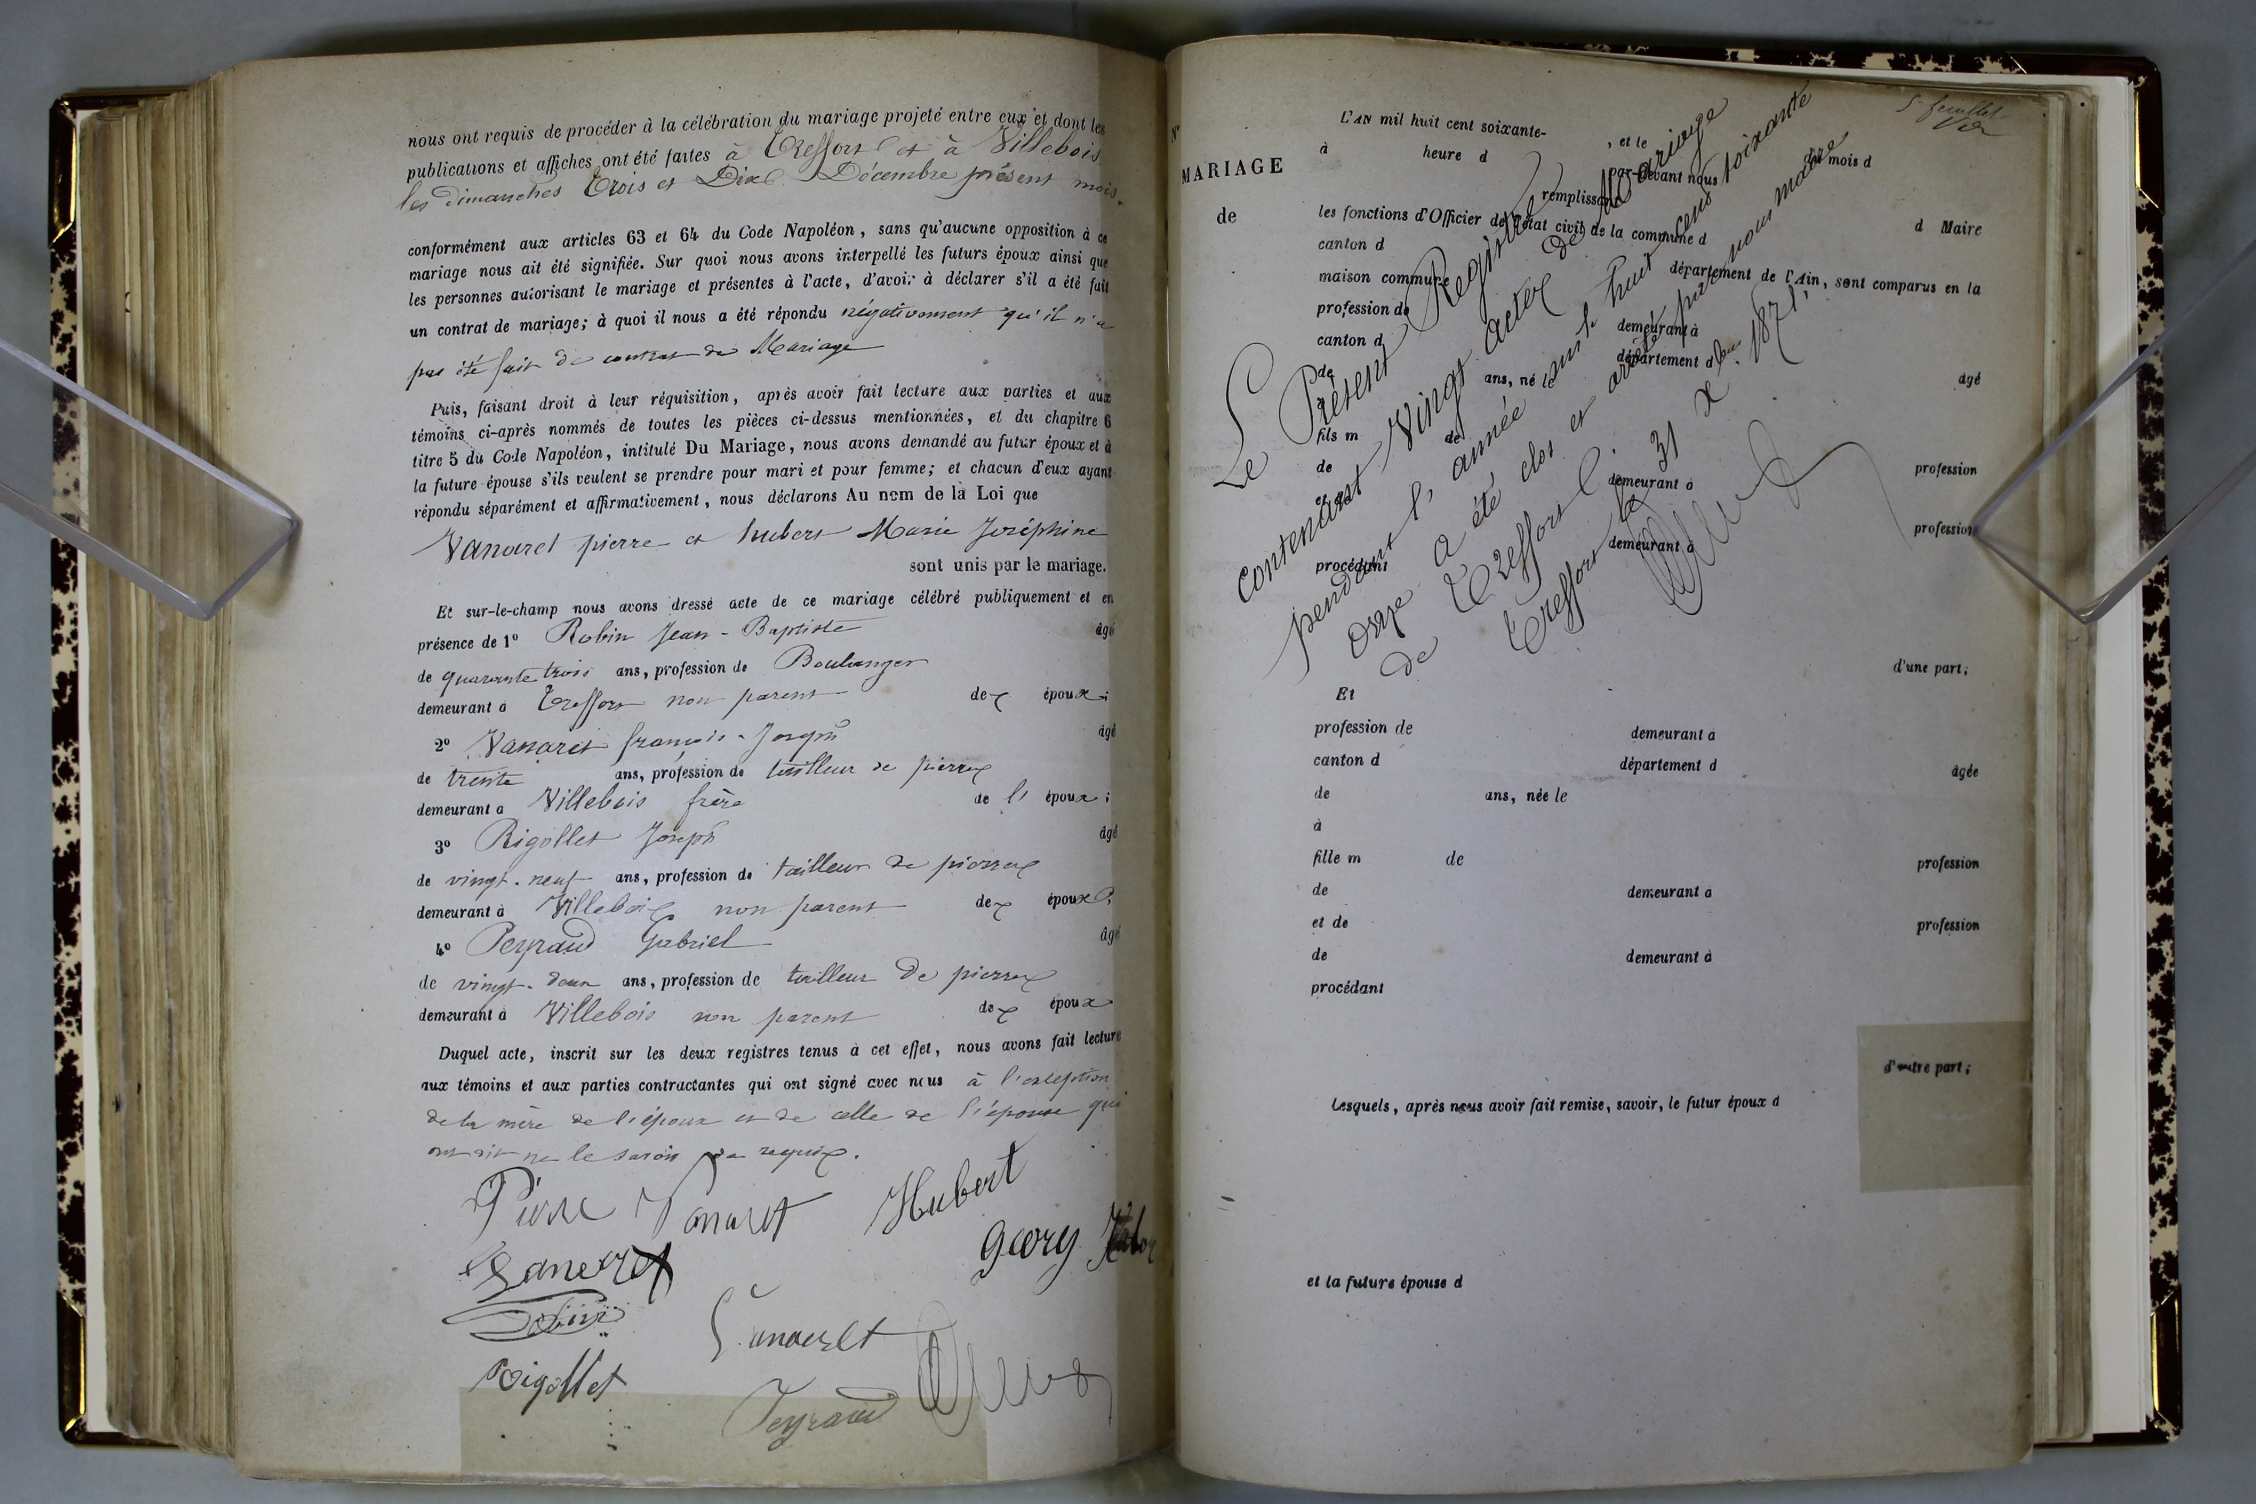 nous ont requis de procéder à la célébration du mariage projeté entre eux et dont les
publications et affiches ont été faites à Treffort et à Villebois
les dimanches Trois et Dix Décembre présent mois.
conformément aux articles 63 et 64 du Code Napoléon, sans qu'aucune opposition à ce
mariage nous ait été signifiée. Sur quoi nous avons interpellé les futurs époux ainsi que
les personnes autorisant le mariage et présentes à l'acte, d'avoir à déclarer s'il a été fait
un contrat de mariage; à quoi il nous a été répondu négativement qu'il n'a
pas été fait de contrat de Mariage
Puis, faisant droit à leur réquisition, après avoir fait lecture aux parties et aux
témoins ci-après nommés de toutes les pièces ci-dessus mentionnées, et du chapitre 6
titre 5 du Code Napoléon, intitulé Du Mariage, nous avons demandé au futur époux et à
la future épouse s'ils veulent se prendre pour mari et pour femme; et chacun d'eux ayant
répondu séparément et affirmativement, nous déclarons Au nom de la Loi que
Vanaret pierre et hubert Marie Joséphine
sont unis par le mariage.
Et sur-le-champ nous avons dressé acte de ce mariage célébré publiquement et en
présence de 1° Robin Jean-Baptiste âgé
de quarante trois ans, profession de Boulanger
demeurant à Treffort non parent des époux;
2° Vanaret françois-Joseph âgé
de trente ans, profession de tailleur de pierres
demeurant à Villebois frère de l' époux;
3° Rigollet Joseph âgé
de vingt-neuf ans, profession de tailleur de pierres
demeurant à Villebois non parent des époux;
4° Peyraud Gabriel âgé
de vingt-deux ans, profession de tailleur de pierres
demeurant à Villebois non parent des époux
Duquel acte, inscrit sur les deux registres tenus à cet effet, nous avons fait lecture
aux témoins et aux parties contractantes qui ont signé avec nous à l'exception
de la mère de l'époux et de celle de l'épouse qui
ont dit ne le savoir de requis.
Pierre Vanaret Hubert
Vanaret Georg
Robin
Vanaret
Rigollet
Peyraud
5e feuillet
N°
MARIAGE
de
L'AN mil huit cent soixante- , et le
à heure d du mois d
par-devant nous
remplissant
les fonctions d'Officier de l'état civil de la commune d d Maire
canton d
département de l'Ain, sont comparus en la
maison commune
profession de demeurant à
canton d département d
de ans, né le âgé
à
fils m de
de demeurant à profession
et de
profession
demeurant à
procédant
Le Présent Registre de Mariage
contenant Vingt actes
pendant l'année mil huit cent soixante
onze a été clos et arrêté par nous maire
de Treffort
Treffort le 31 Xbre 1871
d'une part;
Et
profession de demeurant à
canton d département d
de ans, née le âgée
à
fille m de profession
de demeurant à
et de profession
de demeurant à
procédant
d'autre part;
Lesquels, après nous avoir fait remise, savoir, le futur époux d
et la future épouse d